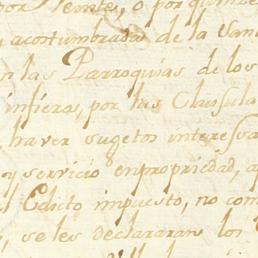 por veinte, o por quinze
y acostumbradas de la San
n las Parroquias de los
infieras, por his Clausula
haver sugetos interesa
y servicio enpropriedad, a
l Edicto impuesto, no com
, se les declararan los